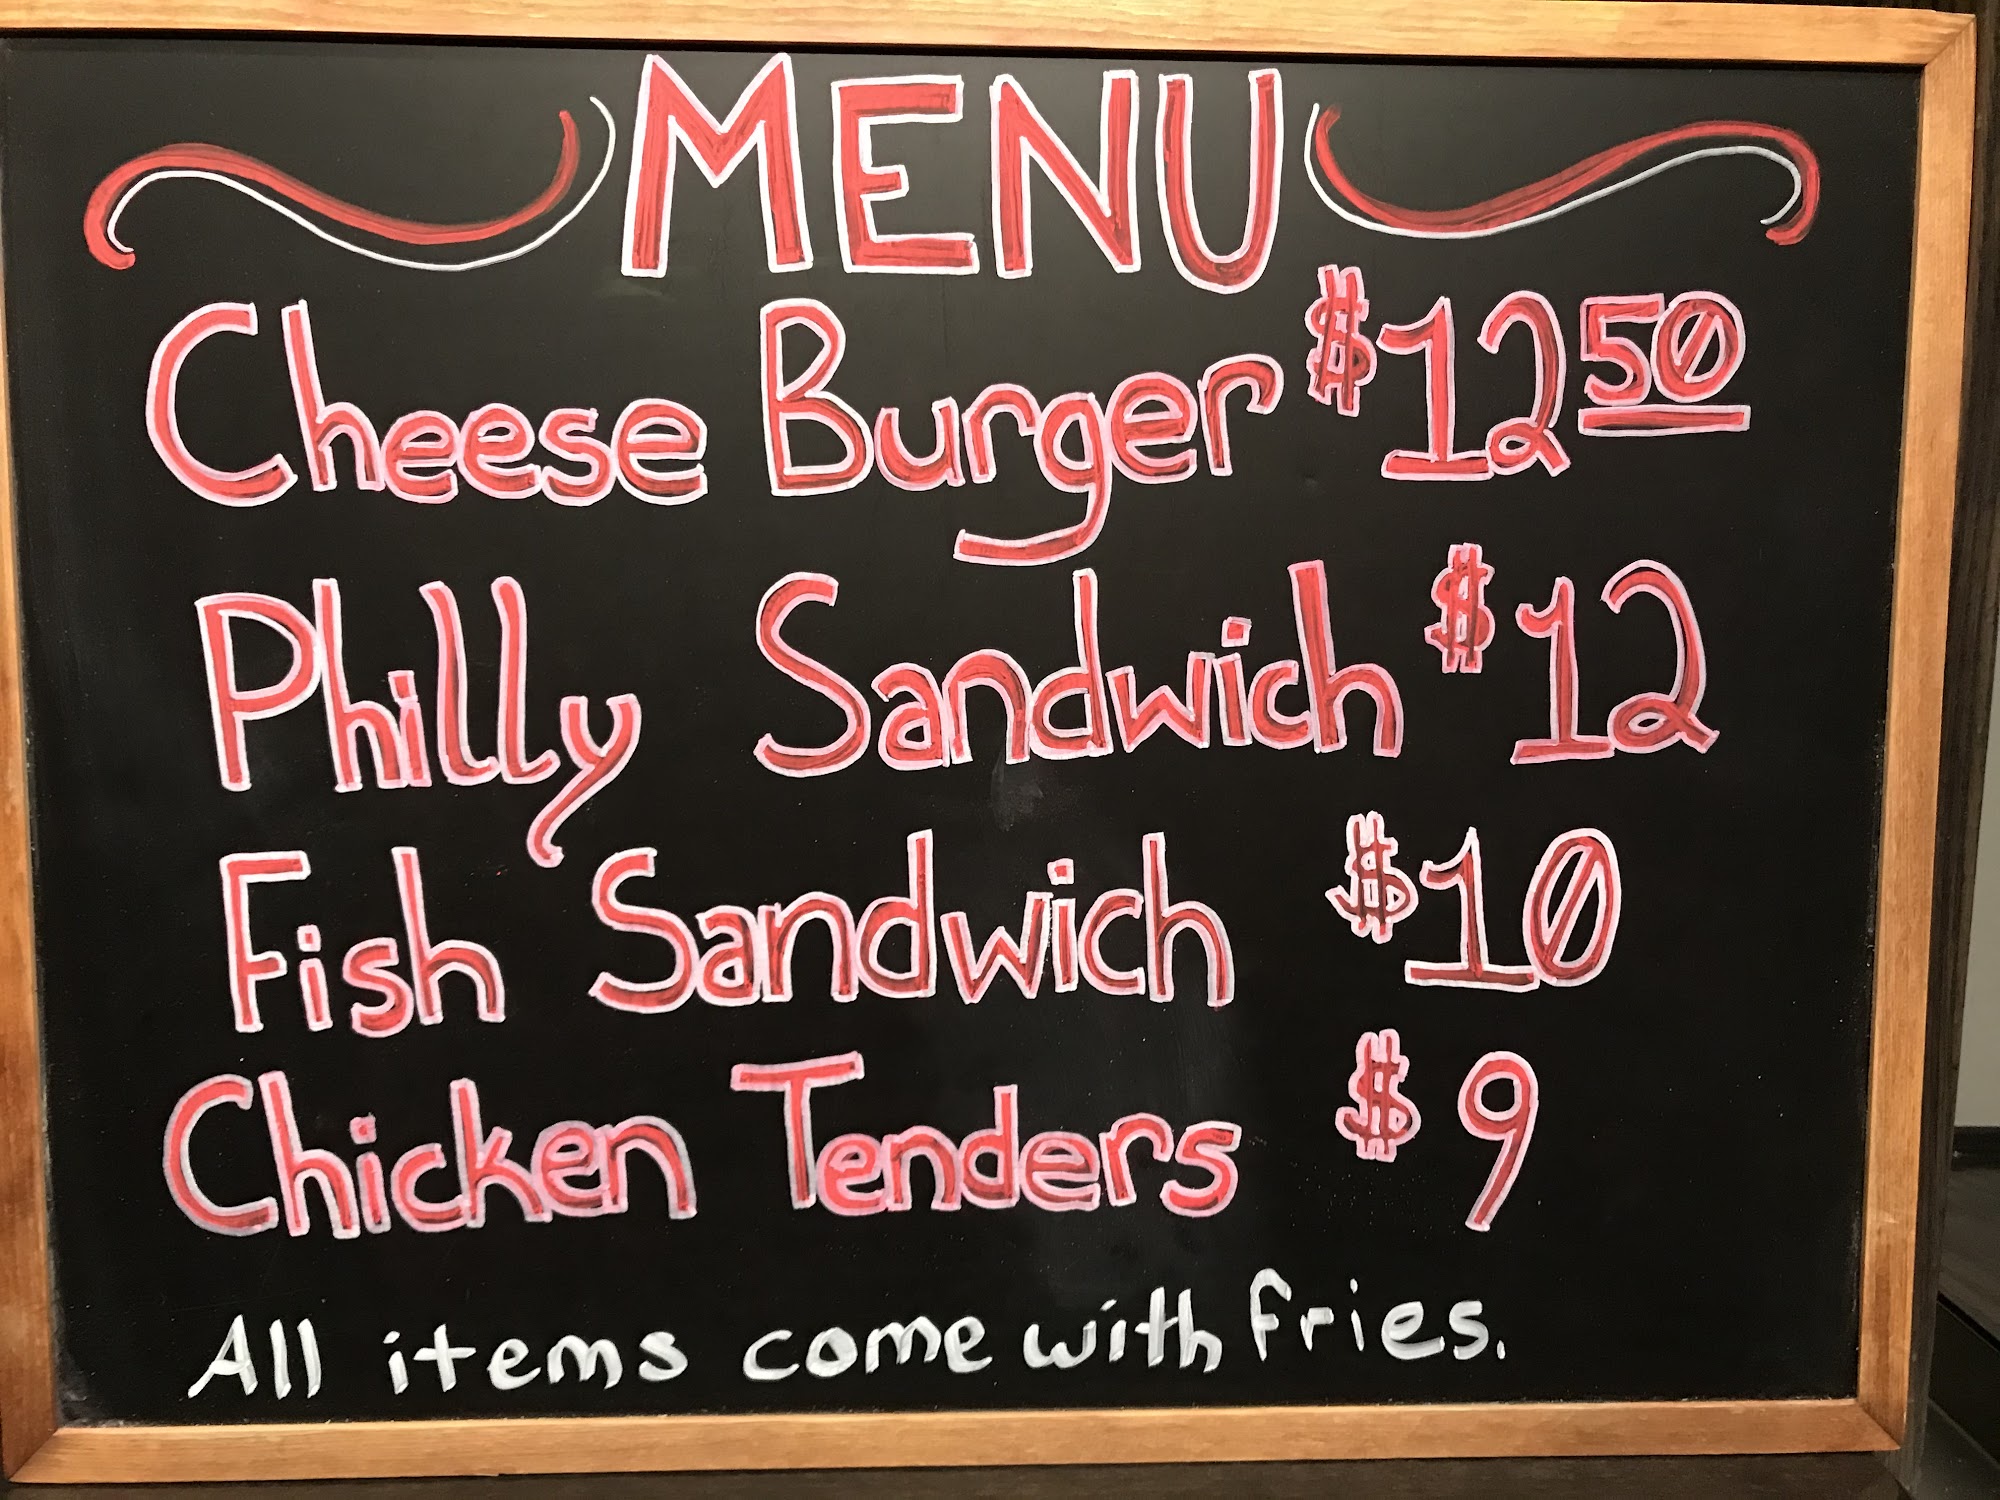 MENU
Cheese Burger $12 50
Philly Sandwich $12
Fish Sandwich $10
Chicken Tenders $9
All items come with fries.